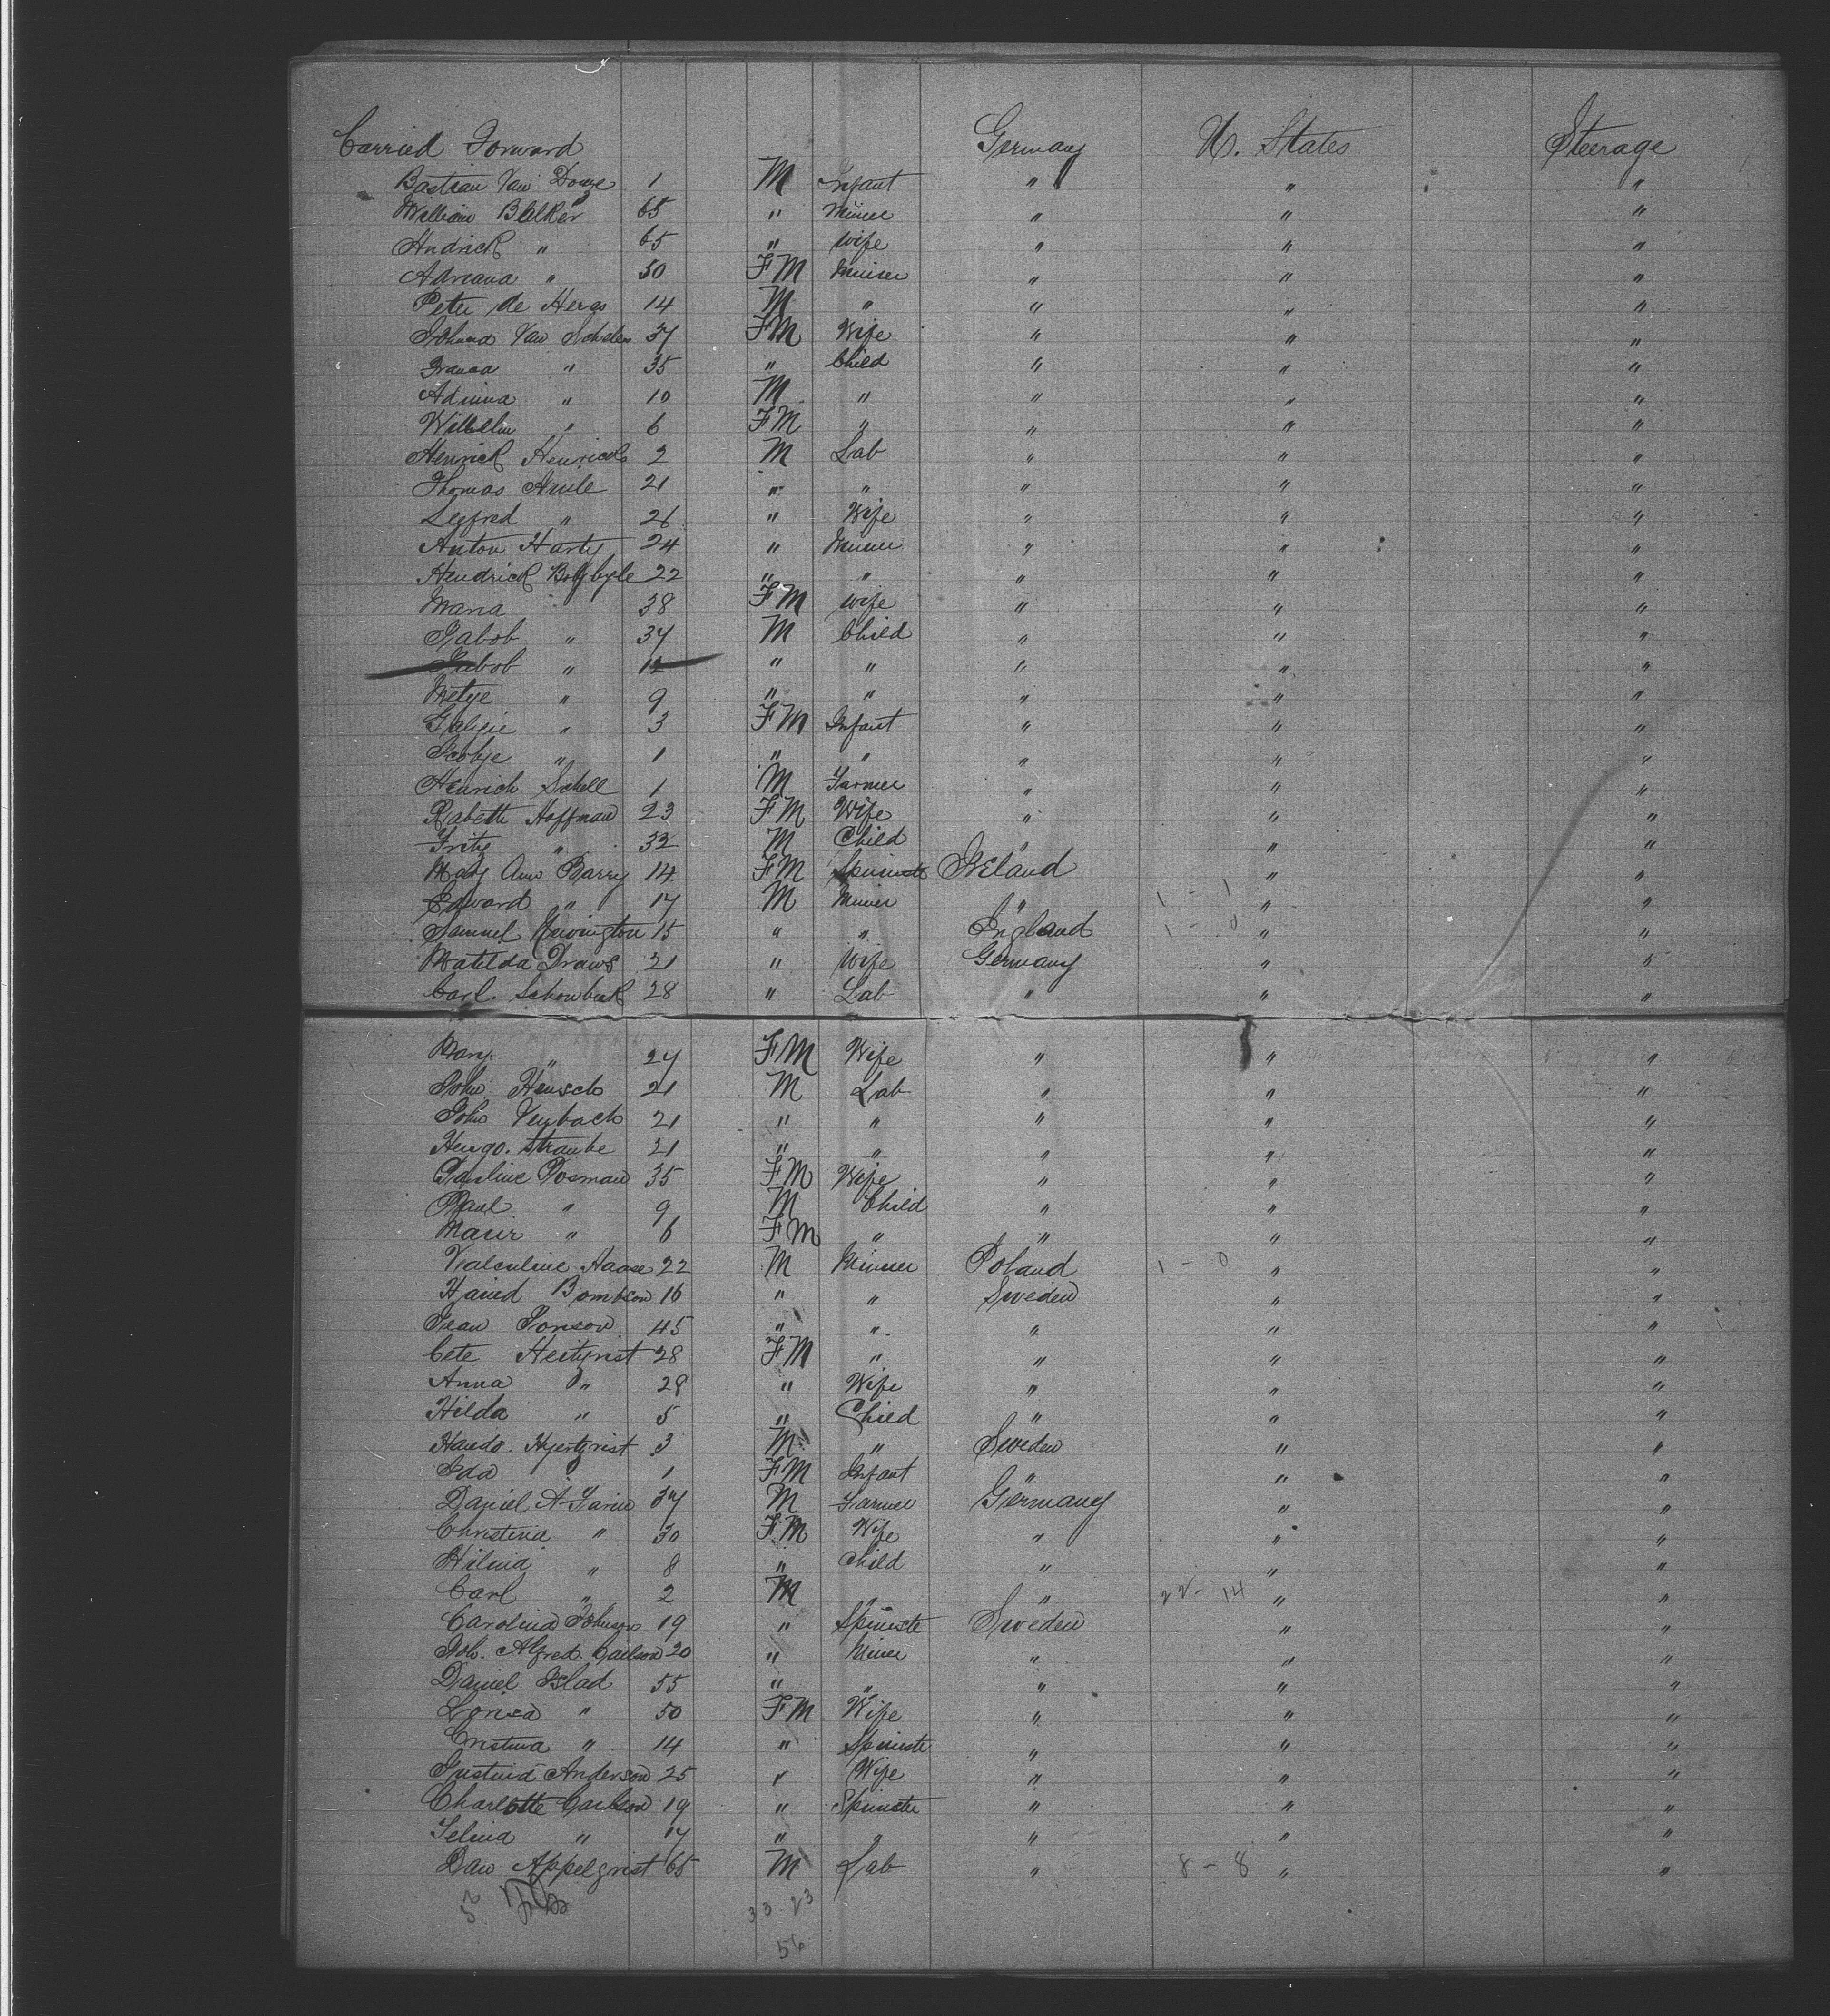 Carried Forward Germany U. States Steerage
Bastian Van Donge 1 M Infant " " "
William Bakker 65 " Miner " " "
Hndrick " 65 " Wife " " "
Adriana " 30 FM Miner " " "
Peter de Hergs 14 M " " " "
Johnna Van Schalen 37 FM Wife " " "
" 35 " Child " " "
Adrina " 10 M " " " "
Wilhelm " 6 FM " " " "
Henrick Henricks 2 M Lab " " "
Thomas 21 " " " " "
Segfred " 26 " Wife " " "
Anton Harty 24 " Miner " " "
Hendrick 22 " " " " "
Maria " 38 FM Wife " " "
Jabob " 37 M Child " " "
Jabob " 12 " " " " "
Metye " 9 " " " " "
" 3 FM Infant " " "
" 1 " " " " "
Henrich Schell 1 M Farmer " " "
Rabeth Hoffman 23 FM Wife " " "
Fritz " 32 M Child " " "
Mary Ann Barry 14 FM Spinste Ireland " "
Edward " 17 M Miner " 1 - 1 " "
Samuel 15 " " England 1 - 0 " "
Matilda Draws 21 " Wife Germany " "
Carl Schonbeck 28 " Lab " " "
Mary " 27 FM Wife " " "
John Hensch 21 M Lab " " "
John Veybach 21 " " " " "
Hugo. Straube 21 " " " " "
Pauline Posman 35 FM Wife " " "
Paul " 9 M Child " " "
Marir " 6 FM " " " "
Valentine Haase 22 M Minner Poland 1 - 0 " "
Bombson 16 " " Sweden " "
Jean Jonson 45 " " " " "
Cete 28 FM " " " "
Anna " 28 " Wife " " "
Hilda " 5 " Child " " "
Hjertqvist 3 M " Sweden " "
Ida 1 FM Infant " " "
Daniel A 37 M Farmer Germany " "
Christina " 30 FM Wife " " "
Hilma " 8 " Child " " "
Carl " 2 M " " 22 - 14 " "
Carolina Johnson 19 " Spinste Sweden " "
Joh. Alfred. Carlson 20 " Miner " " "
Daniel Blad 55 " " " " "
Lovisa " 50 FM Wife " " "
Cristina " 14 " Spinste " " "
Justina Anderson 25 " Wife " " "
Charlotte Carlson 19 " Spinste " " "
Selina " 17 " " " " "
Dan Appelqvist 65 M Lab " 8 - 8 " "
33 23
56